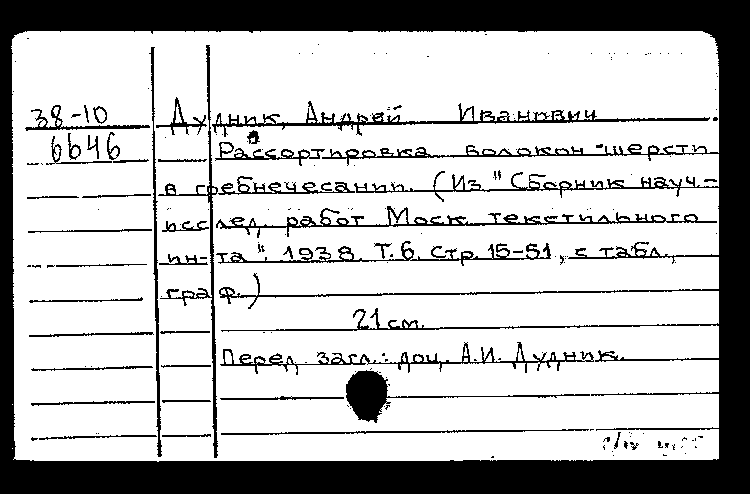 38-10
6646
Дудник, Андрей Иванович
Рассортировка волокон шерсти
в гребнечесании. (Из "Сборник науч.-
исслед. работ Моск. текстильного
ин-та". 1938. Т.6. Стр. 15-51, с табл.,
граф.)
21 см.
Перед загл.: доц. А.И. Дудник.